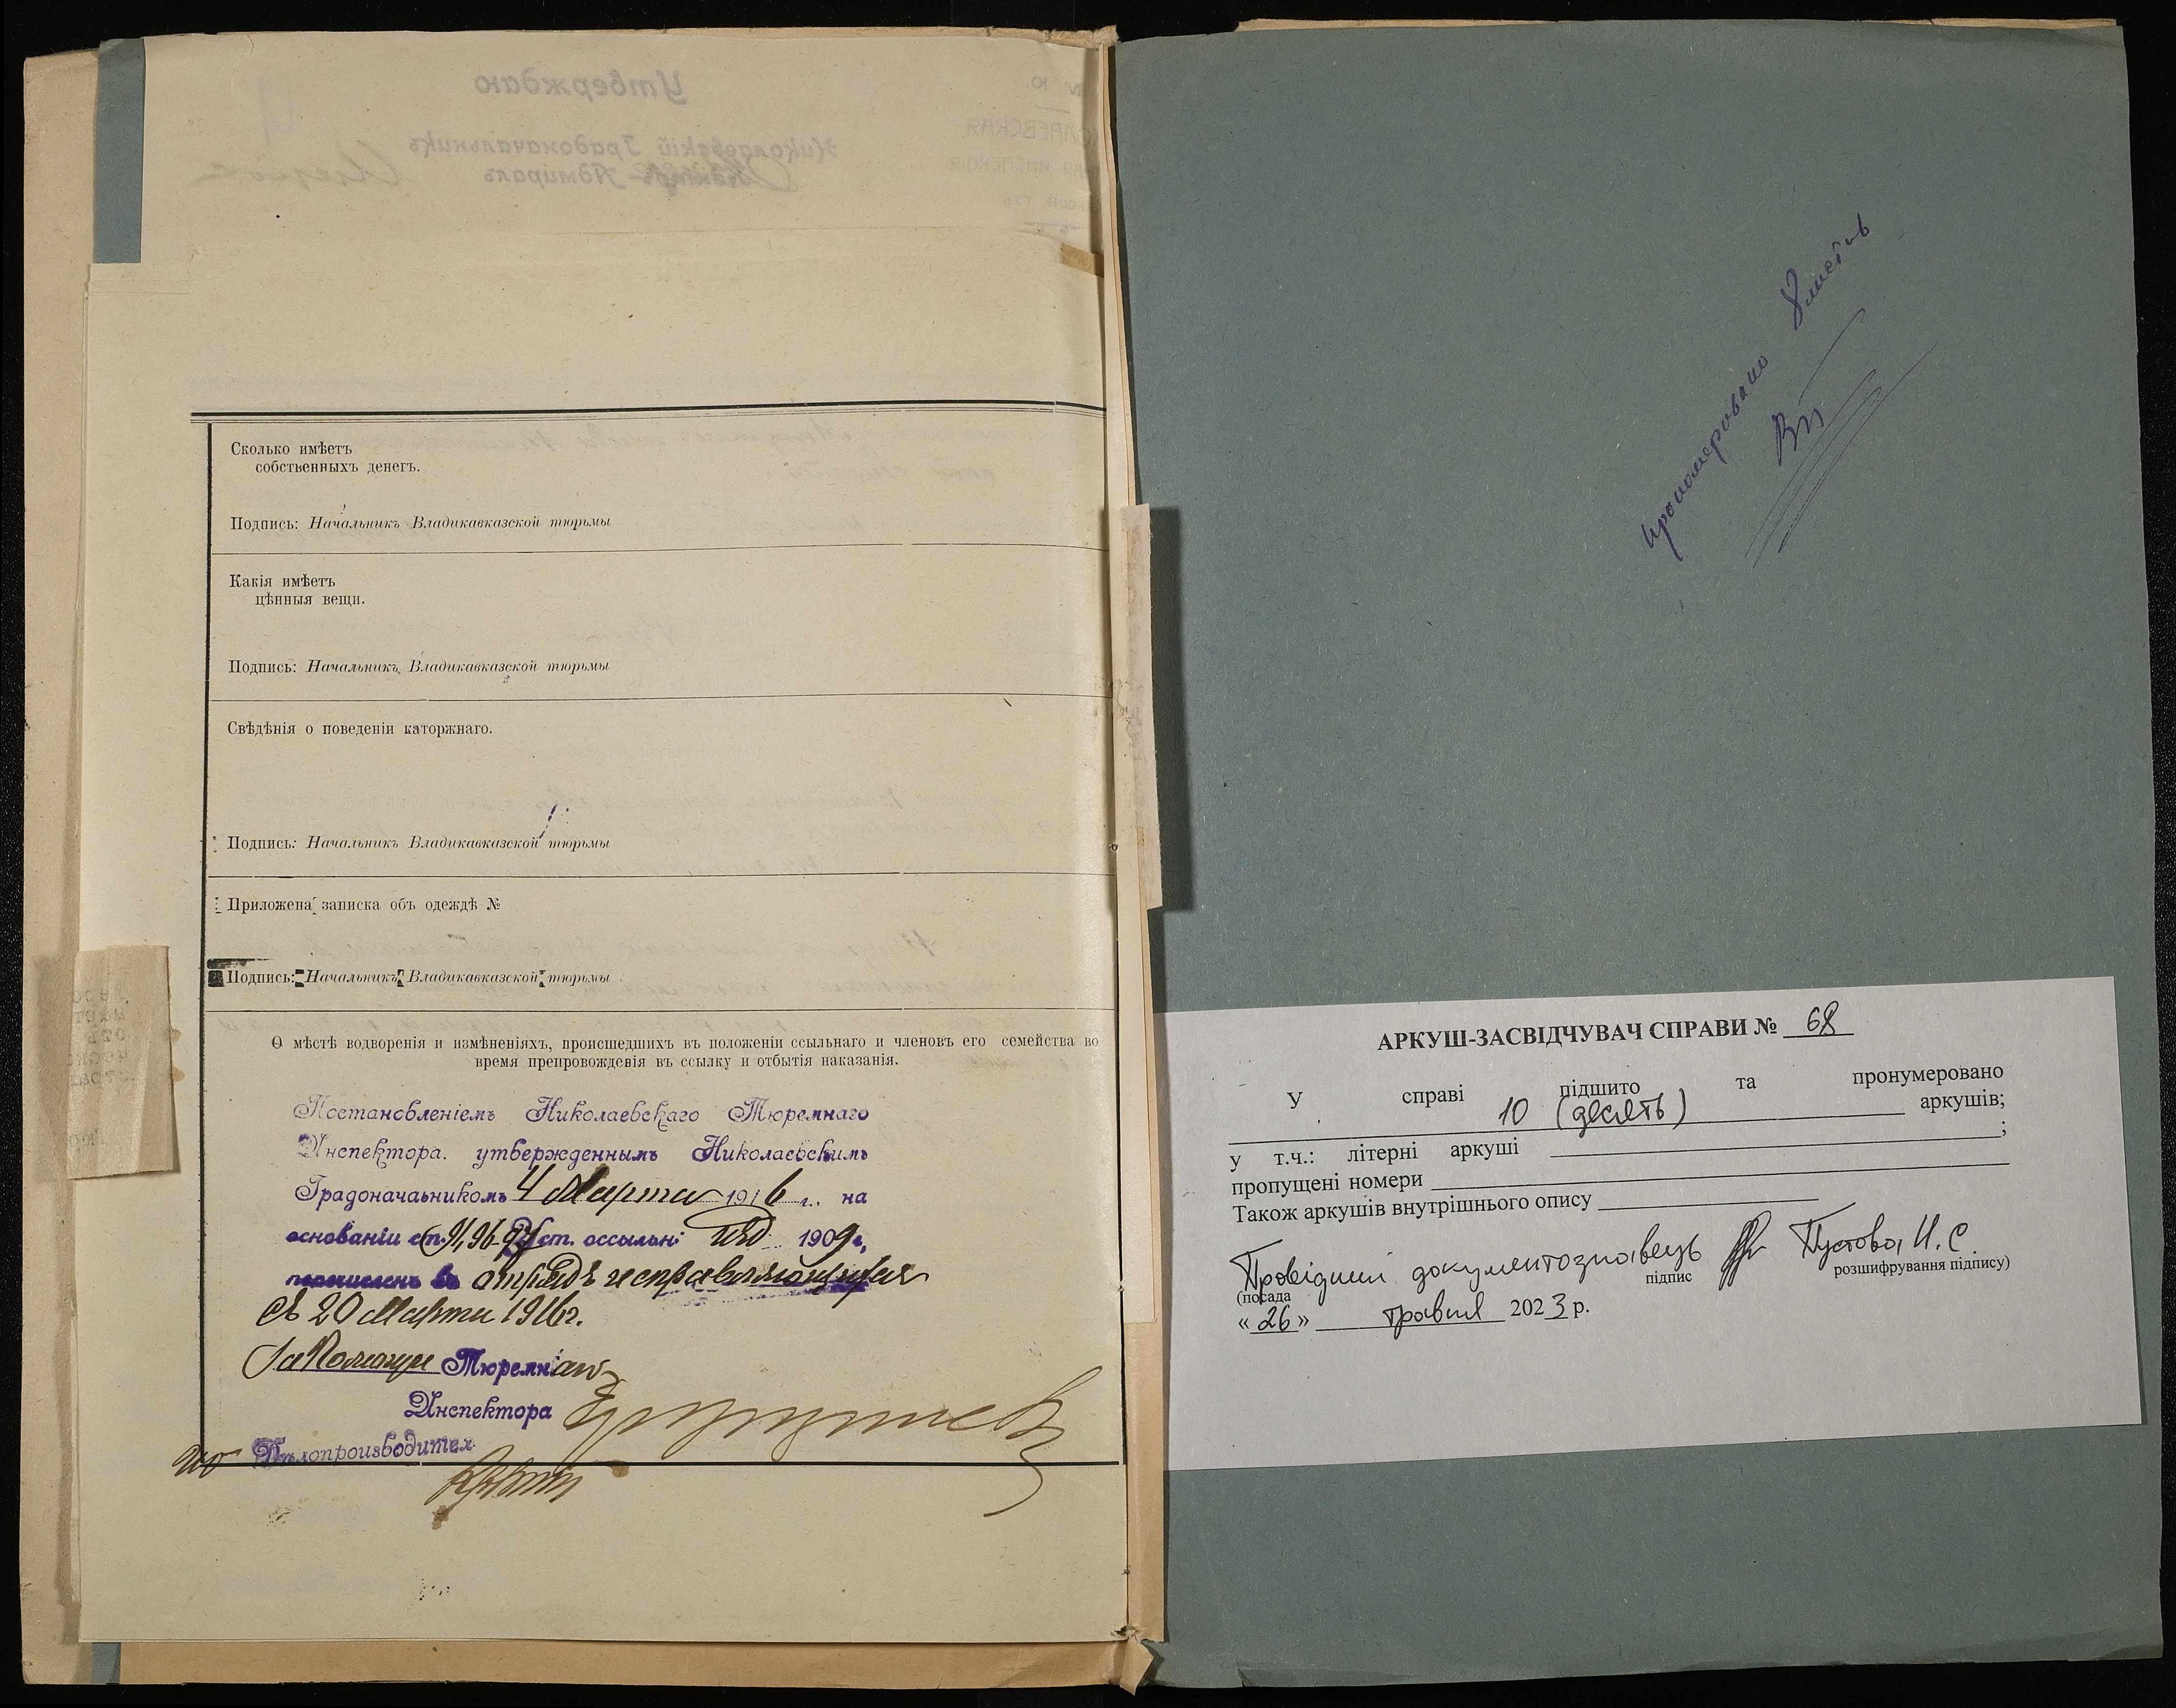 Утверждаю
Николаевскій Градоначальникъ
Контръ-Адмиралъ
Сколько имѣетъ
собственныхъ денегъ.
Подпись: Начальникъ Владикавказской тюрьмы
Какія имѣетъ
цѣнныя вещи.
Подпись: Начальникъ Владикавказской тюрьмы
Свѣдѣнія о поведеніи каторжнаго.
Подпись: Начальникъ Владикавказской тюрьмы
Приложена записка объ одеждѣ №
Подпись: Начальникъ Владикавказской тюрьмы
О мѣстѣ водворенія и измѣненіяхъ, происшедшихъ въ положеніи ссыльнаго и членовъ его семейства во
время препровожденія въ ссылку и отбытія наказанія.
Постановленіемъ Николаевскаго Тюремнаго
Инспектора, утвержденнымъ Николаевскимъ
Градоначаьникомъ 4 Марта 1916 г. на
основаніи ст. 96 Уст. оссыльн изд 1909 г,
перечисленъ въ отрядъ исправляющихся
съ 20 Марта 1916 г.
За Помощн Тюремнаго
Инспектора
Дѣлопроизводител
пронумеровано 8 листов
АРКУШ-ЗАСВІДЧУВАЧ СПРАВИ № 68
У справі підшито та пронумеровано
10 (десять) аркушів;
у т.ч.: літерні аркуші ;
пропущені номери
Також аркушів внутрішнього опису
Провідний документознавець Пустова, И. С
(посада підпис розшифрування підпису)
« 26 » травня 2023 р.